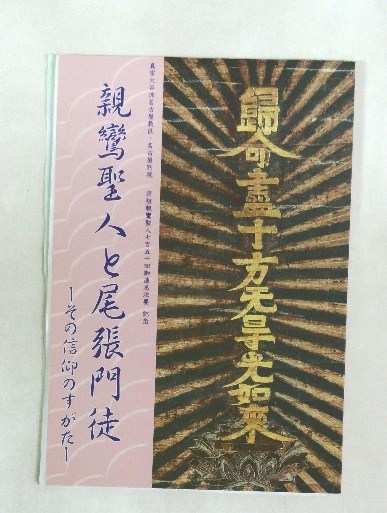 歸命盡十方无导光如来
真宗大谷派名古屋教区・名古屋別院 宗祖親鸞聖人七百五十回御遠忌法要 記念
親鸞聖人と尾張門徒
ーその信仰のすがたー